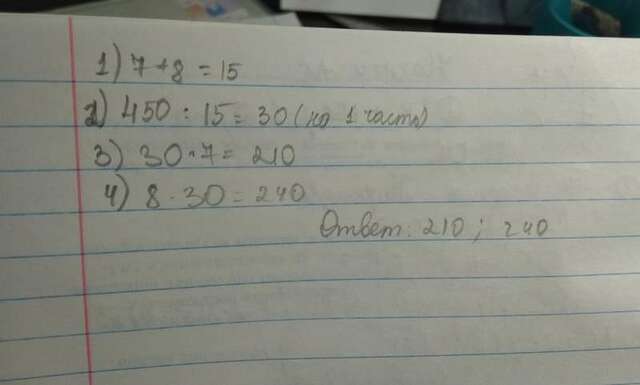 1) 7 + 8 = 15
2) 450 : 15 = 30 (на 1 часть)
3) 30 · 7 = 210
4) 8 · 30 = 240
Ответ: 210 ; 240